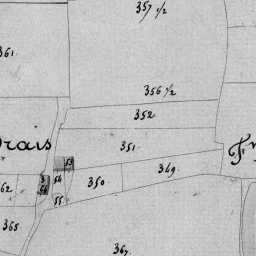 357 1/2
361
356 1/2
352
351
53
349
350
54
62
55
365
367